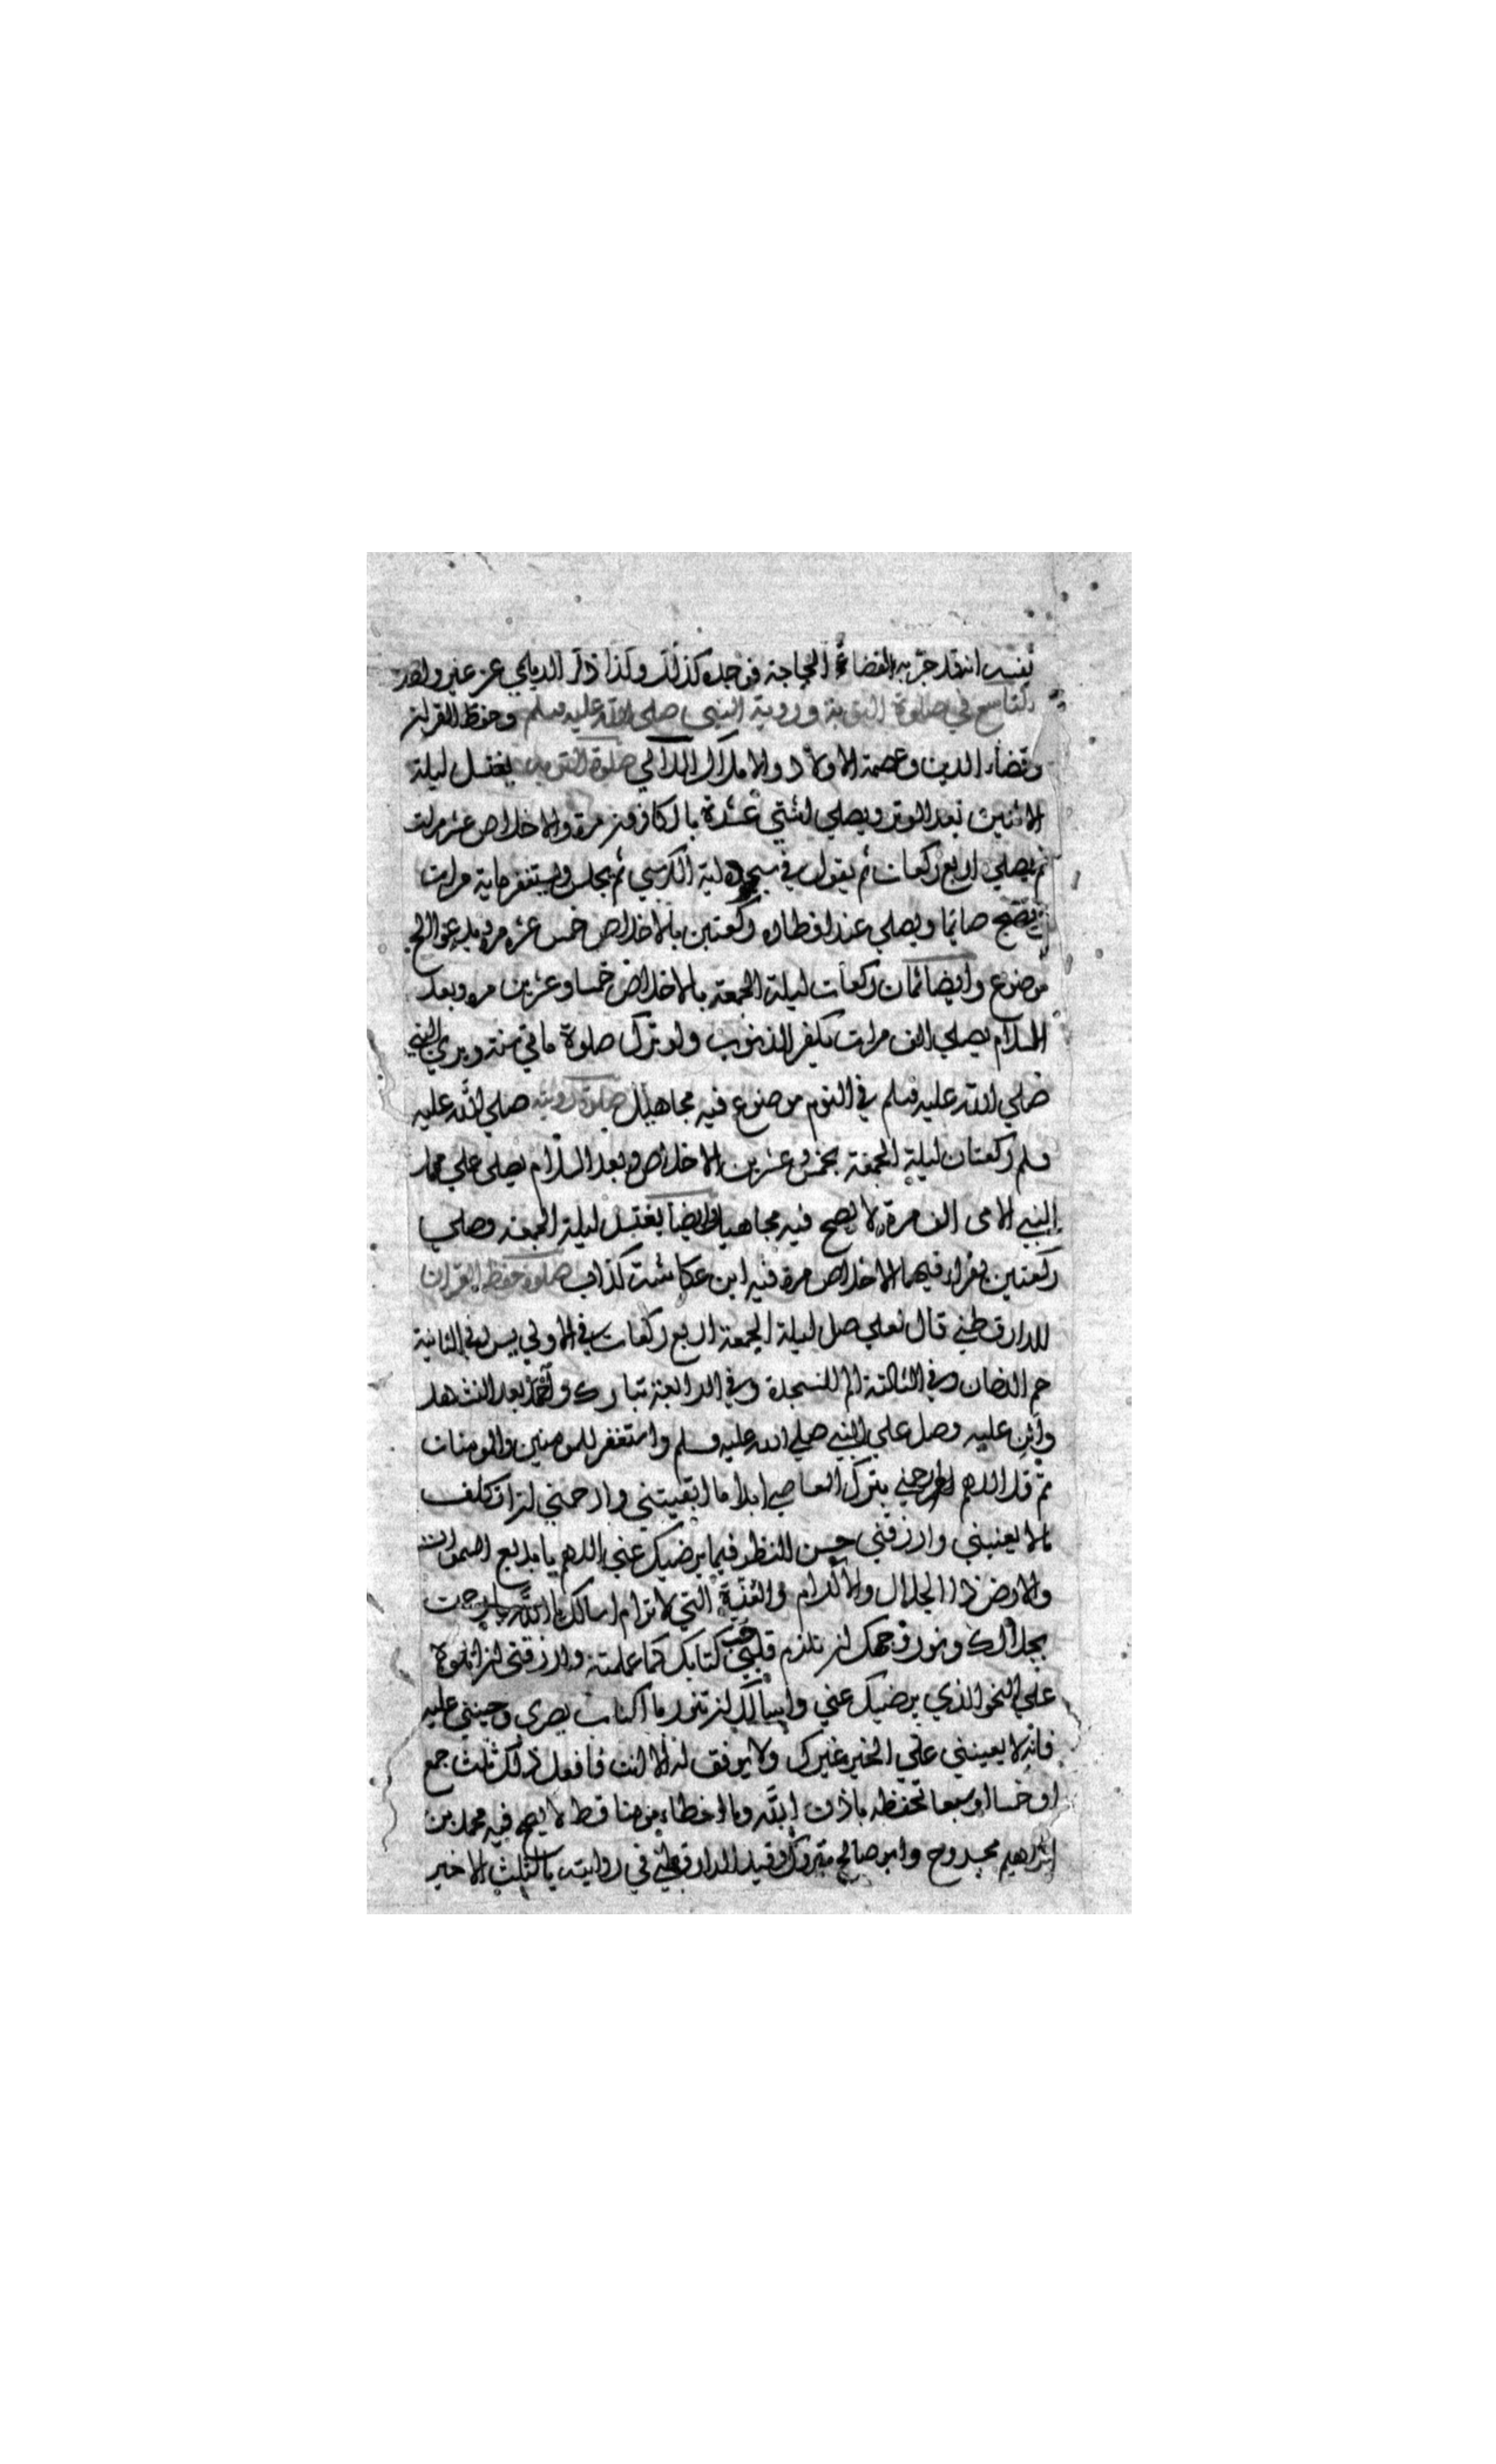 نفسه انه قد جربه لقضاء الحاجة فوجده كذلك وكذا ذكر الديلمي عن غير واحد
التاسع في صلوة التوبة وروية النبي صلى الله عليه وسلم وحفظ القران
وقضاء الدين وعصمة الاولاد والاملاك اللآلي صلوة التوبة يغتسل ليلة
الاثنين بعد الوتر ويصلي اثنتي عشرة بالكافرون مرة والاخلاص عشر مرات
ثم يصلي اربع ركعات ثم يقول في سجوده اية الكرسي ثم يجلس ويستغفر ماية مرات
ثم يصبح صائما ويصلي عند افطاره ركعتين بالاخلاص خمس عشرة مرة ويدعو الخ
موضوع وايضا ثمان ركعات ليلة الجمعة بالاخلاص خمسا وعشرين مره وبعد
السلام يصلي الف مرات يكفر الذنوب ولو ترك صلوة مائتي سنة ويري النبي
صلي الله عليه وسلم في النوم موضوع فيه مجاهيل صلوة رويته صلي الله عليه
وسلم ركعتان ليلة الجمعة بخمس وعشرين الاخلاص وبعد السلام يصلي علي محمد
النبي الامي الف مرة لا يصح فيه مجاهيل وايضا يغتسل ليلة الجمعة وصلي
ركعتين يقراء فيهما الاخلاص مرة فيه ابن عكاشة كذاب صلوة حفظ القران
للدارقطني قال لعلي صل ليلة الجمعة اربع ركعات في الاولي يس وفي الثانية
حم الدخان وفي الثالثة الم السجدة وفي الرابعة تبارك واحمد بعد التشهد
واثن عليه وصل علي النبي صلي الله عليه وسلم واستغفر للمومنين والمومنات
ثم قل اللهم ارحمني بترك المعاصي ابدا ما ابقيتني وارحمني ان اتكلف
مالا يعنيني وارزقني حسن النظر فيما يرضيك عني اللهم يا بديع السموات
والارض ذا الجلال والاكرام والعزة التي لا ترام اسالك يا الله يا رحمن
بجلالك ونور وجهك ان تلزم قلبي حب كتابك كما علمته وارزقني ان اتلوه
علي النحو الذي يرضيك عني واسالك ان تنور بالكتاب بصري وحيني عليه
فانه لا يعينني علي الخير غيرك ولا يوفق له الا انت فافعل ذلك ثلث جمع
او خمسا او سبعا تحفظه باذن الله وما اخطاء مومنا قط لا يصح فيه محمد بن
ابراهيم مجروح وابو صالح متروك وقيد الدارقطني في روايته بالثلث الاخير